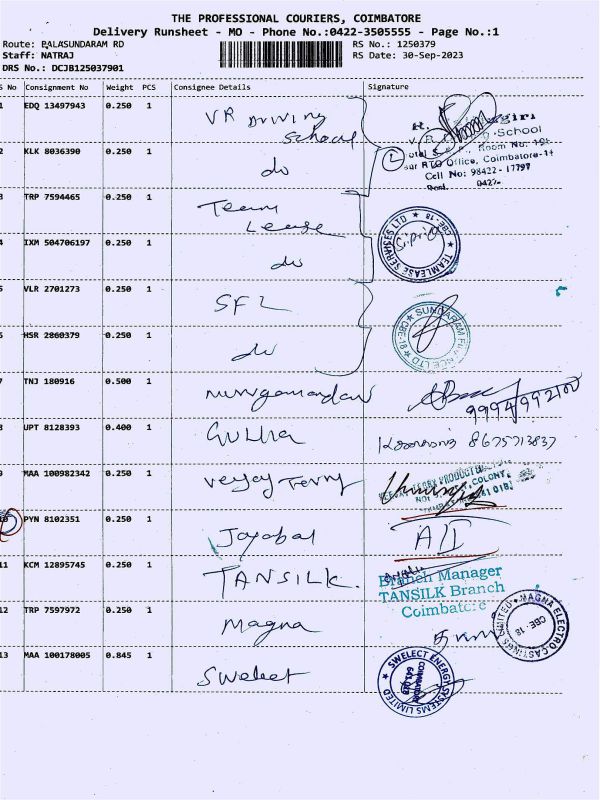 THE PROFESSIONAL COURIERS, COIMBATORE
Delivery Runsheet - MO - Phone No.:0422-3505555 - Page No.:1
Route: BALASUNDARAM RD
RS No.: 1250379
Staff: NATRAJ
RS Date: 30-Sep-2023
DRS No.: DCJB125037901
S No Consignment No Weight PCS Consignee Details Signature
1 EDQ 13497943 0.250 1 VR Driving School
School
RTO Office, Coimbatore-1
Cell No: 98422-17797
2 KLK 8036390 0.250 1 do
3 TRP 7594465 0.250 1 Team Lease
TEAMLEASE SERVICES LTD ★ CBE-18 ★
4 IXM 504706197 0.250 1 do
5 VLR 2701273 0.250 1 SFL
★ SUNDARAM FINANCE LTD ★ CBE-18
6 HSR 2860379 0.250 1 do
7 TNJ 180916 0.500 1
8 UPT 8128393 0.400 1 8675713837
9 MAA 100982342 0.250 1 Veejay Terry
VEEJAY TERRY PRODUCTS
COLONY
10 PYN 8102351 0.250 1 Jayabal
11 KCM 12895745 0.250 1 TANSILK.
Branch Manager
TANSILK Branch
Coimbatore
12 TRP 7597972 0.250 1 Magna
MAGNA ELECTRO CASTINGS LIMITED
CBE-18
13 MAA 100178005 0.845 1 Swelect
★ SWELECT ENERGY SYSTEMS LIMITED ★
COIMBATORE